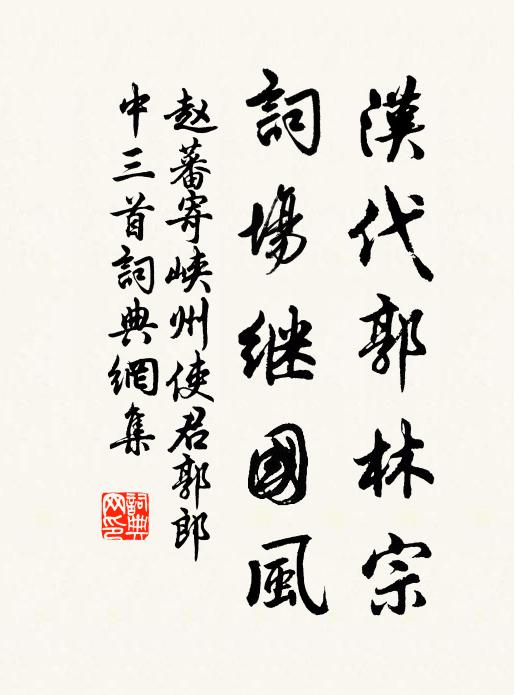 漢代郭林宗
詞場继國風
赵蕃寄峡州使君郭郎
中三首詞典網集
詞典
网印